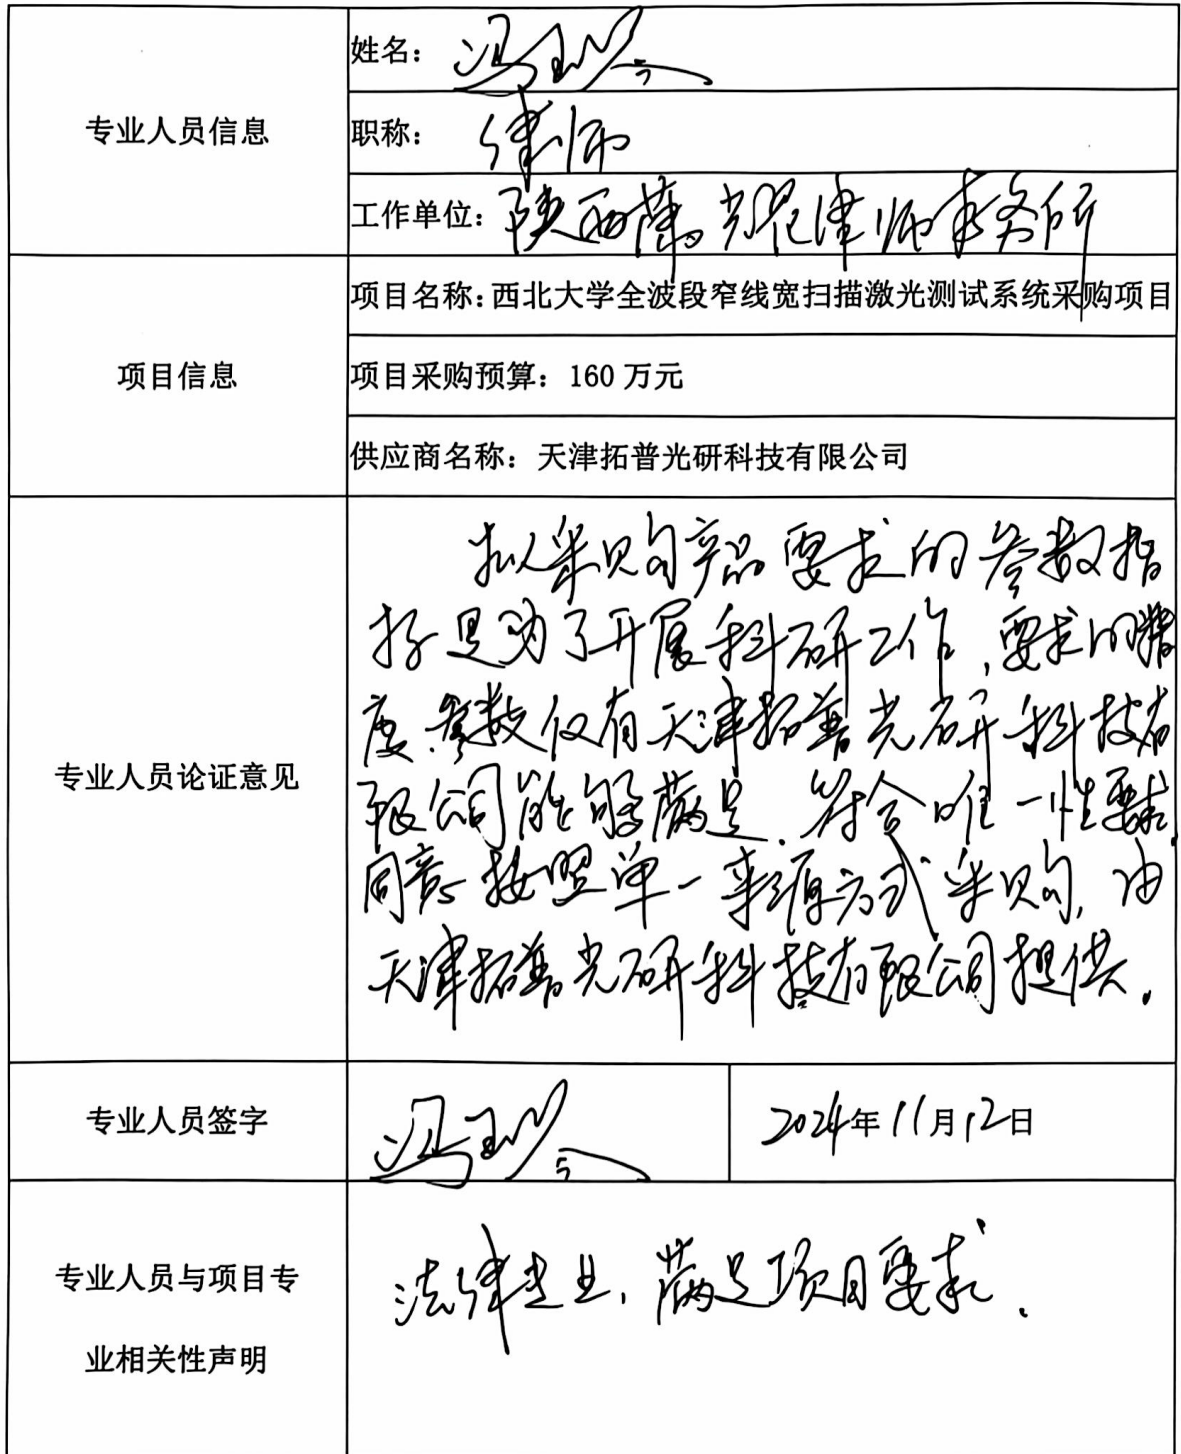 专业人员信息
姓名：冯
职称：律师
工作单位：陕西 光耀律师事务所
项目信息
项目名称：西北大学全波段窄线宽扫描激光测试系统采购项目
项目采购预算：160万元
供应商名称：天津拓普光研科技有限公司
专业人员论证意见
拟采购产品要求的参数指
标是为了开展科研工作，要求的精
度、参数仅有天津拓普光研科技有
限公司能够满足，符合唯一性要求，
同意按照单一来源方式采购，由
天津拓普光研科技有限公司提供。
专业人员签字
冯
2024年11月12日
专业人员与项目专
业相关性声明
法律专业，满足项目要求。